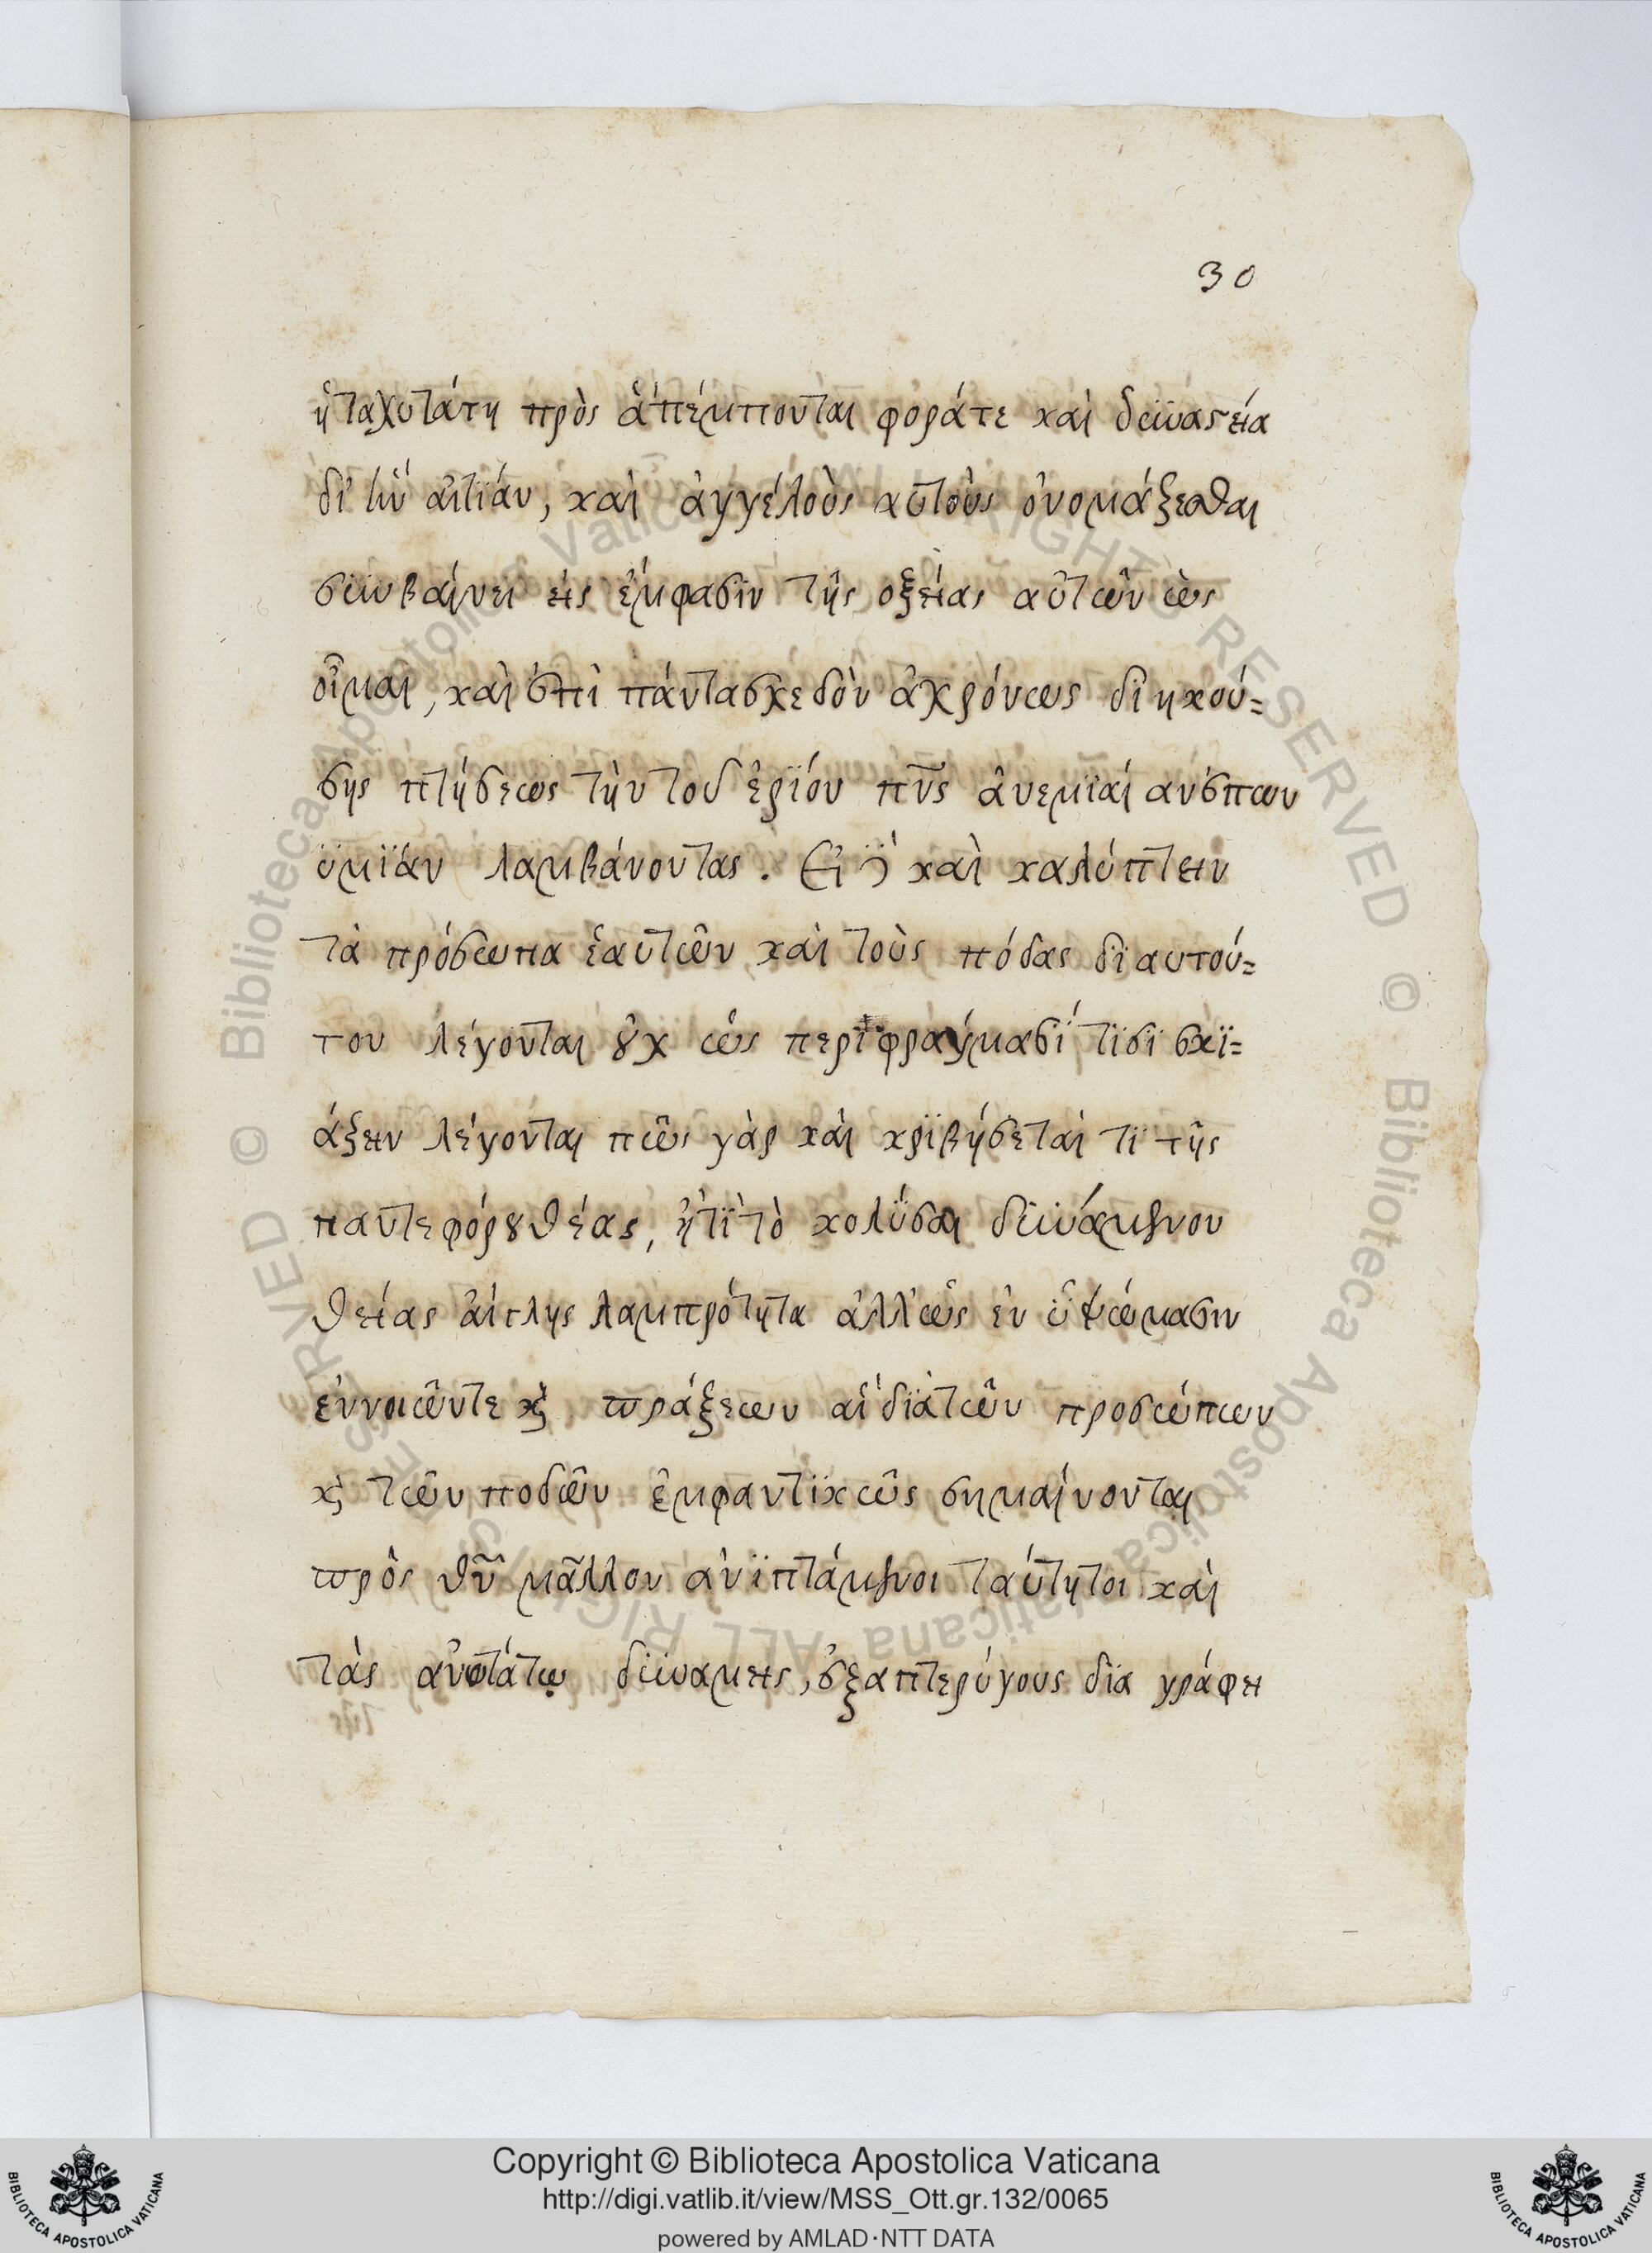 30
ἡ ταχυτάτη πρὸς ἃ πέμπονται φορά τε καὶ δυναστεία
δι' ἣν αἰτίαν, καὶ ἀγγέλους αὐτοὺς ὀνομάξεσθαι
συμβαίνει εἰς ἔμφασιν τῆς ὀξείας αὐτῶν ὡς
οἶμαι, καὶ ἐπὶ πάντα σχεδὸν ἀχρόνως διηκού=
σης πτήσεως τὴν τοῦ ἐρίου πνς ἀνεμιαί ανέπων
ὑμϊάν λαμβάνοντας. Εἰ δὲ καὶ καλύπτειν
τὰ πρόσωπα ἑαυτῶν καὶ τοὺς πόδας δι αυτού=
του λέγονται οὐχ ὡς περιφράγμασί τισι σκϊ=
άξειν λέγονται πῶς γὰρ καὶ κριβήσεταί τι τῆς
παντεφόρου θέας, ἤ τι τὸ κολῦσαι δυνάμενον
θείας αἴγλης λαμπρότητα ἀλλ' ὡς ἐν ὑψώμασιν
ἐννοιῶν τε καὶ πράξεων αἳ διὰ τῶν προσώπων
καὶ τῶν ποδῶν ἐμφαντικῶς σημαίνονται
πρὸς θν μᾶλλον ἀνιπτάμενοι ταύτῃ τοι καὶ
τὰς ἀνωτάτω δυνάμεις, ἑξαπτερύγους δια γράφει
Copyright © Biblioteca Apostolica Vaticana
http://digi.vatlib.it/view/MSS_Ott.gr.132/0065
powered by AMLAD·NTT DATA
BIBLIOTECA APOSTOLICA VATICANA
BIBLIOTECA APOSTOLICA VATICANA
© Biblioteca Apostolica Vaticana ALL RIGHTS RESERVED
© Biblioteca Apostolica Vaticana ALL RIGHTS RESERVED